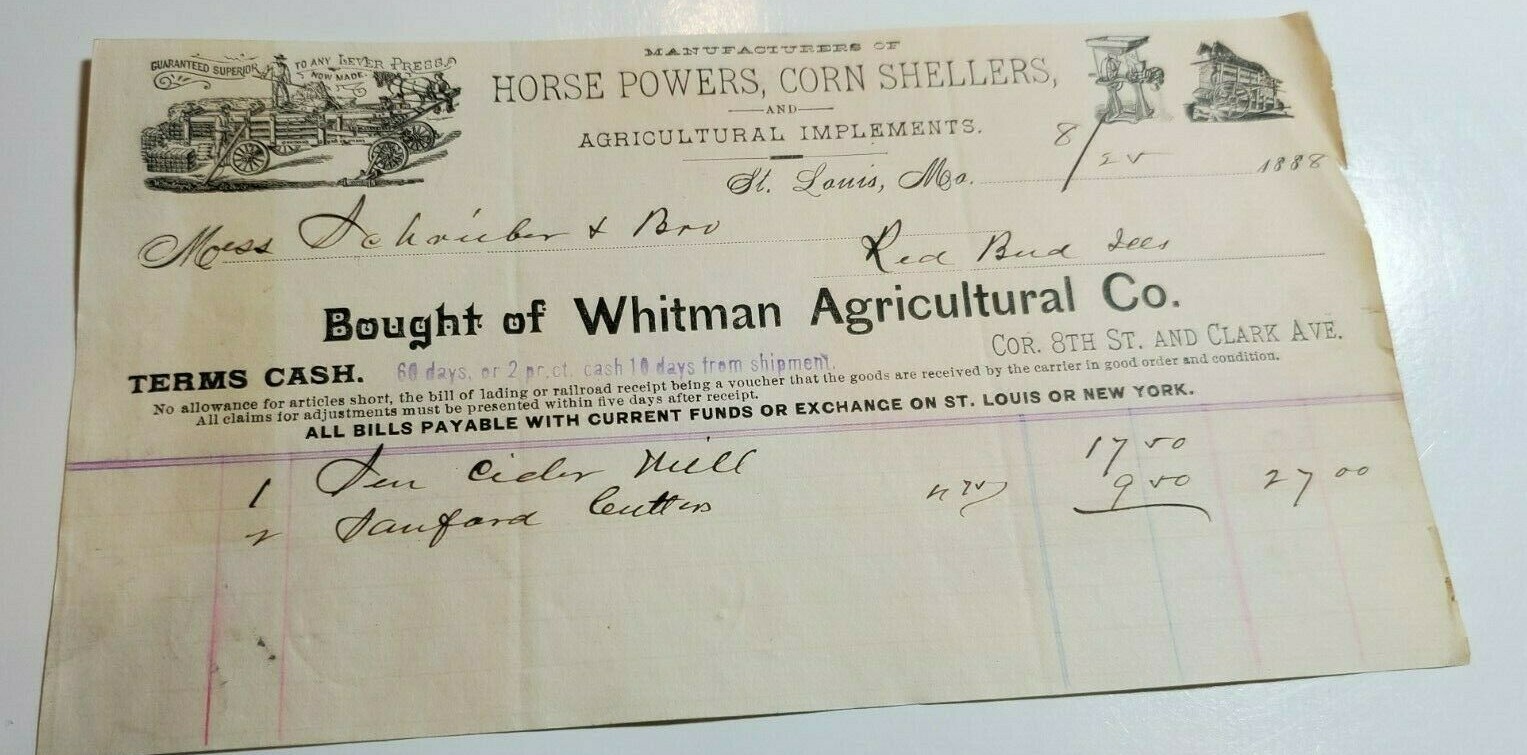 GUARANTEED SUPERIOR TO ANY LEVER PRESS
NOW MADE.
MANUFACTURERS OF
HORSE POWERS, CORN SHELLERS,
AND
AGRICULTURAL IMPLEMENTS.
St. Louis, Mo. 8/25 1888
Mess Schrieber & Bro
Red Bud Ills
Bought of Whitman Agricultural Co.
COR. 8TH ST. AND CLARK AVE.
TERMS CASH. 60 days, or 2 pr.ct. cash 10 days from shipment.
No allowance for articles short, the bill of lading or railroad receipt being a voucher that the goods are received by the carrier in good order and condition.
All claims for adjustments must be presented within five days after receipt.
ALL BILLS PAYABLE WITH CURRENT FUNDS OR EXCHANGE ON ST. LOUIS OR NEW YORK.
1 Cider Mill 17 50
2 Sanford Cutters 9 50 27 00